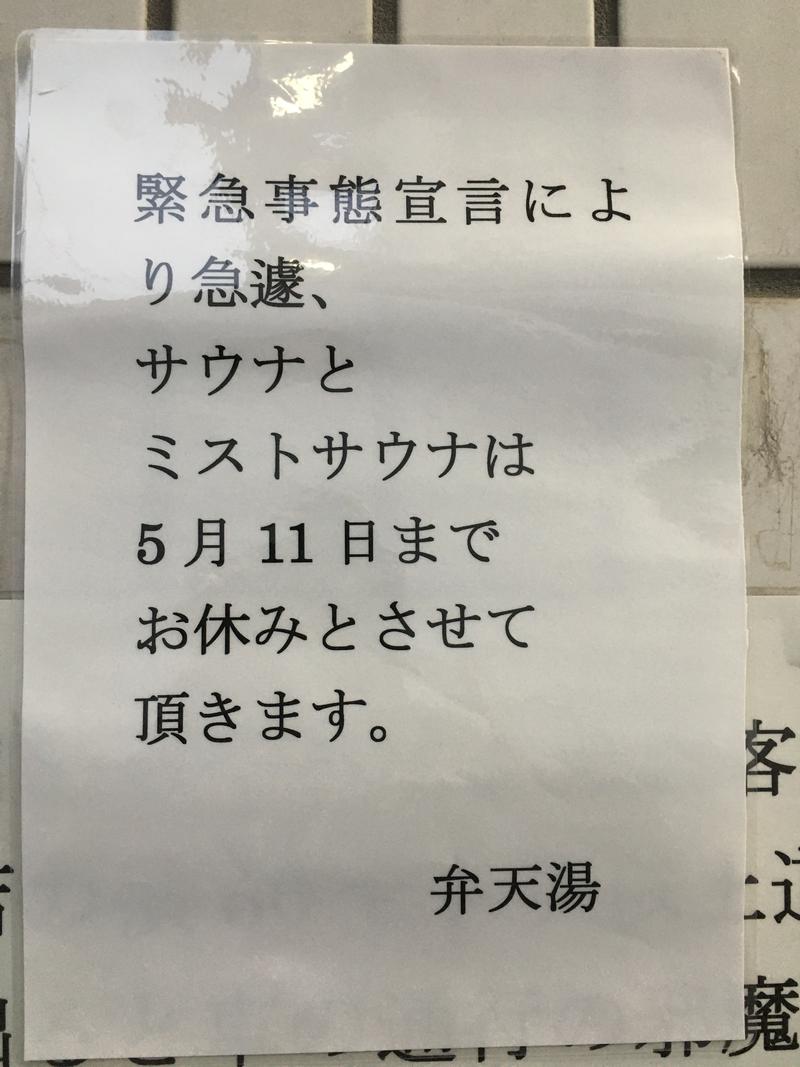 緊急事態宣言によ
り急遽、
サウナと
ミストサウナは
5月11日まで
お休みとさせて
頂きます。
弁天湯
客
魔